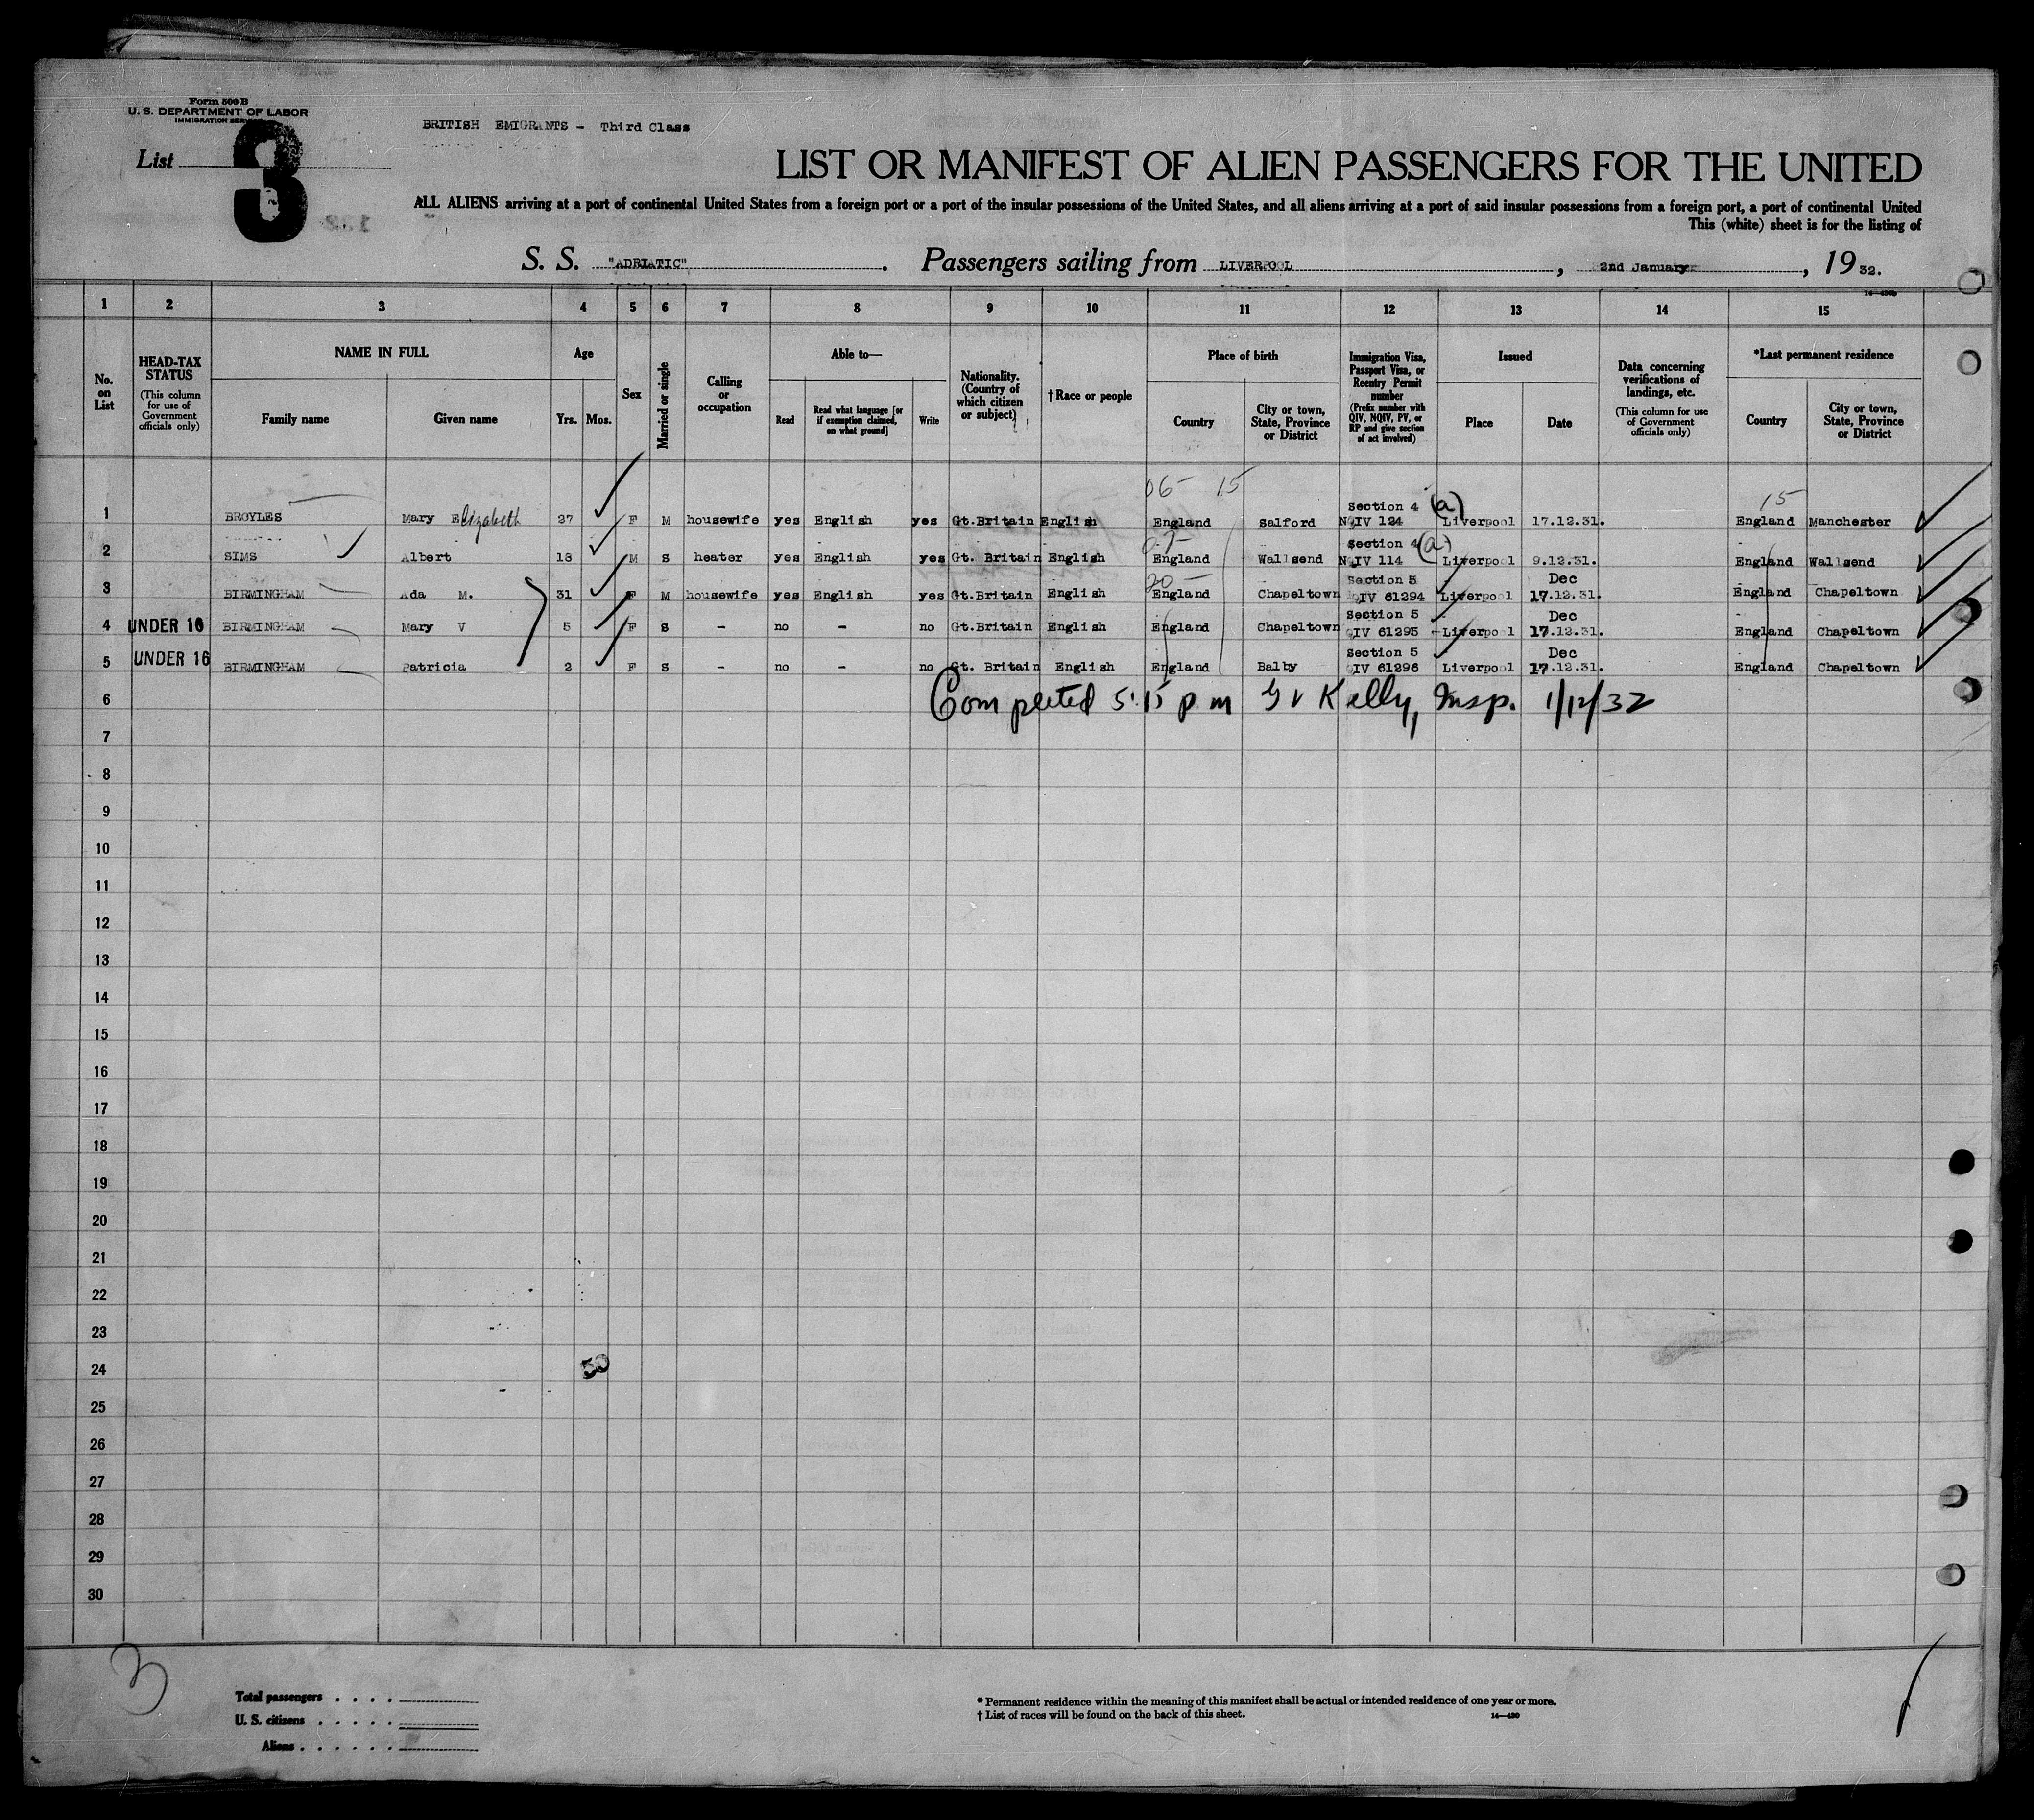 Form 500 B
U. S. DEPARTMENT OF LABOR
IMMIGRATION SERVICE
BRITISH EMIGRANTS - Third Class
List 3
LIST OR MANIFEST OF ALIEN PASSENGERS FOR THE UNITED
ALL ALIENS arriving at a port of continental United States from a foreign port or a port of the insular possessions of the United States, and all aliens arriving at a port of said insular possessions from a foreign port, a port of continental United
This (white) sheet is for the listing of
S. S. "ADRIATIC". Passengers sailing from LIVERPOOL, 2nd January, 1932.
1 2 3 4 5 6 7 8 9 10 11 12 13 14 15
No. on List
HEAD-TAX STATUS
(This column for use of Government officials only)
NAME IN FULL
Family name
Given name
Age
Yrs. Mos.
Sex
Married or single
Calling or occupation
Able to—
Read
Read what language [or if exemption claimed, on what ground]
Write
Nationality. (Country of which citizen or subject)
†Race or people
Place of birth
Country
City or town, State, Province or District
Immigration Visa, Passport Visa, or Reentry Permit number
(Prefix number with QIV, NQIV, PV, or RP and give section of act involved)
Issued
Place
Date
Data concerning verifications of landings, etc.
(This column for use of Government officials only)
*Last permanent residence
Country
City or town, State, Province or District
06- 15 15
Section 4 (a)
1 BROYLES Mary Elizabeth 27 F M housewife yes English yes Gt.Britain English England Salford NQIV 124 Liverpool 17.12.31. England Manchester
Section 4 (a)
2 SIMS Albert 18 M S heater yes English yes Gt. Britain English England Wallsend NQIV 114 Liverpool 9.12.31. England Wallsend
20- Section 5 Dec
3 BIRMINGHAM Ada M. 31 F M housewife yes English yes Gt.Britain English England Chapeltown QIV 61294 Liverpool 17.12.31. England Chapeltown
Section 5 Dec
4 UNDER 16 BIRMINGHAM Mary V 5 F S - no - no Gt.Britain English England Chapeltown QIV 61295 Liverpool 17.12.31. England Chapeltown
Section 5 Dec
5 UNDER 16 BIRMINGHAM Patricia 2 F S - no - no Gt. Britain English England Balby QIV 61296 Liverpool 17.12.31. England Chapeltown
6 Completed 5:15 p m G V Kelly, Insp. 1/12/32
7
8
9
10
11
12
13
14
15
16
17
18
19
20
21
22
23
24
25
26
27
28
29
30
3
Total passengers
U. S. citizens
Aliens
* Permanent residence within the meaning of this manifest shall be actual or intended residence of one year or more.
† List of races will be found on the back of this sheet.
14—430